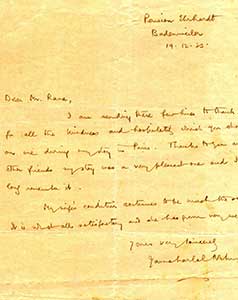 Pension Ehrhardt
Badenweiler
19.12.35.
Dear Mr. Rana,
I am sending these few lines to thank
for all the kindness and hospitality which you sho
on me during my stay in Paris. Thanks to you an
other friends my stay was a very pleasant one and I
long remember it.
My wife's condition continues to be much the s
It is not at all satisfactory and she has grown very we
Yours very sincerely
Jawaharlal Nehru